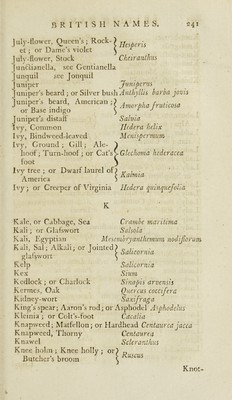 BRITISH NAMES. 241
July-flower, Queen's; Rock-
et; or Dame's violet } Hesperis
July-flower, Stock Cheiranthus
Junctianella, see Gentianella
Junquil see Jonquil
Juniper Juniperus
Juniper's beard; or Silver bush Anthyllis barba jovis
Juniper's beard, American;
or Base indigo } Amorpha fruticosa
Juniper's distaff Salvia
Ivy, Common Hedera helix
Ivy, Bindweed-leaved Menispermum
Ivy, Ground; Gill; Ale-
hoof; Turn-hoof; or Cat's
foot } Glechoma hederacea
Ivy tree; or Dwarf laurel of
America } Kalmia
Ivy; or Creeper of Virginia Hedera quinquefolia
K
Kale, or Cabbage, Sea Crambe maritima
Kali; or Glasswort Salsola
Kali, Egyptian Mesembryanthemum nodiflorum
Kali, Sal; Alkali; or Jointed
glasswort } Salicornia
Kelp Salicornia
Kex Sium
Kedlock; or Charlock Sinapis arvensis
Kermes, Oak Quercus coccifera
Kidney-wort Saxifraga
King's spear; Aaron's rod; or Asphodel Asphodelus
Kleinia; or Colt's-foot Cacalia
Knapweed; Matfellon; or Hardhead Centaurea jacea
Knapweed, Thorny Centaurea
Knawel Scleranthus
Knee holm; Knee holly; or
Butcher's broom } Ruscus
Knot-